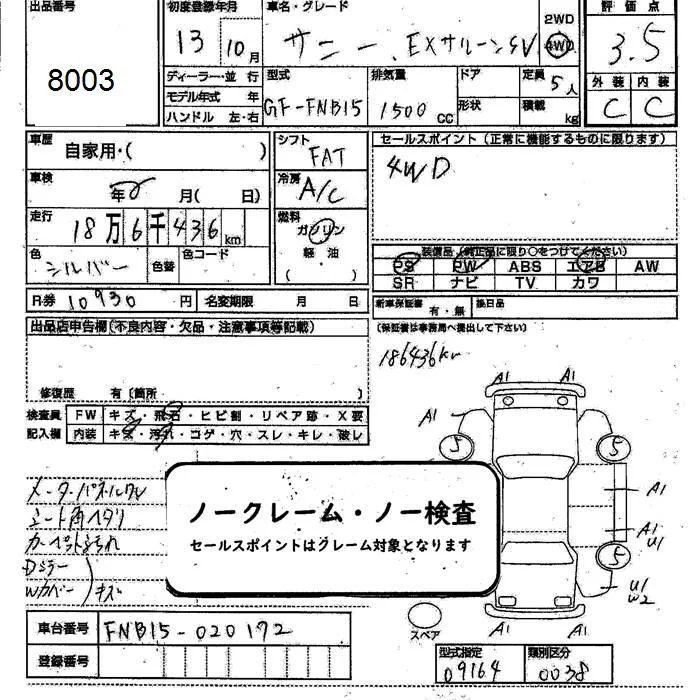 出品番号
8003
初度登録年月
13 10月
車名・グレード
サニー EXサルーンSV
2WD
4WD
評価点
3.5
外装 内装
C C
ディーラー・並行
モデル年式 年
ハンドル 左・右
型式
GF-FNB15
排気量
1500cc
ドア
形状
定員 5人
積載 kg
車歴
自家用・( )
車検
年 月( 日)
走行
18万6千436km
色
シルバー
色替
色コード
シフト
FAT
冷房
A/C
燃料
ガソリン
軽油
( )
セールスポイント (正常に機能するものに限ります)
4WD
装備品 (純正品に限り○をつけてください)
PS PW ABS エアB AW
SR ナビ TV カワ
R券 10930円 名変期限 月 日
新車保証書 有・無 後日品
(保証書は事務局へ提出して下さい)
出品店申告欄(不良内容・欠品・注意事項等記載)
修復歴 有〔箇所 〕
186436km
検査員 FW キズ・飛石・ヒビ割・リペア跡・X要
記入欄 内装 キズ・汚れ・コゲ・穴・スレ・キレ・破レ
A1 A1
A1
5 5
A1
A1
U1
5
U1
W2
A1 A1
スペア
メーターパネルワレ
シート角ヘタリ
カーペットよごれ
Dミラー
Wカバー キズ
ノークレーム・ノー検査
セールスポイントはクレーム対象となります
車台番号 FNB15-020172
登録番号
型式指定 類別区分
09164 0038